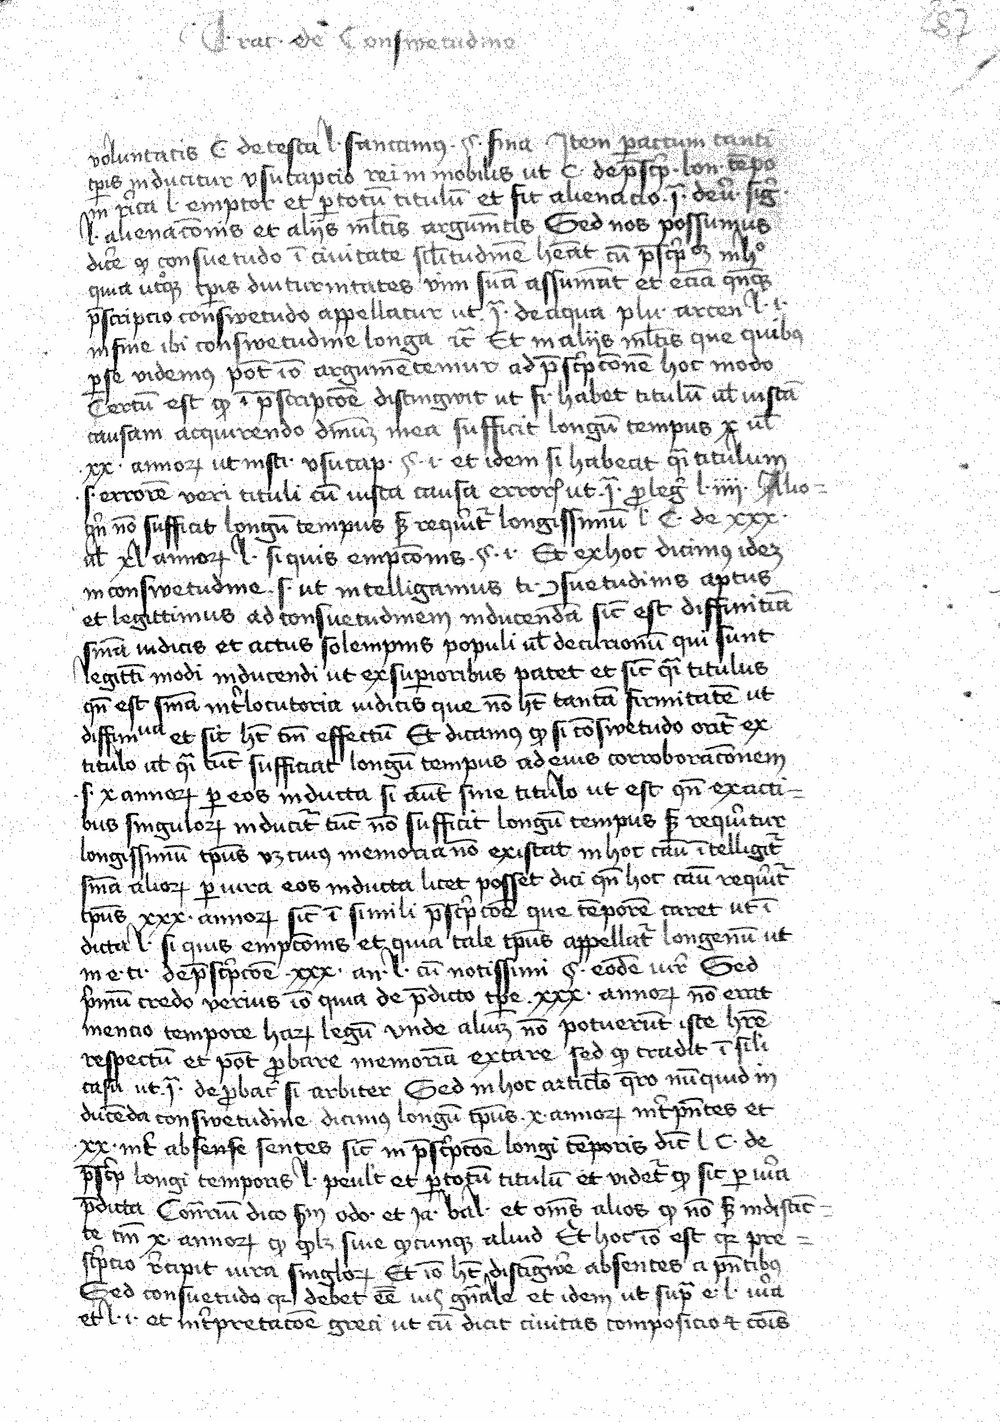 Trac. de Conswetudine
287
voluntatis C de testa l. sancimus. §. fina Item pactum tanti
tp̄is inducitur vsucapcio rei inmobilis ut C. de p̄scp̄. lon. tēpo
in r̄ica l. emptor et p totū titulū et sit alienacio. j̄. de v̄. siḡ.
l. alienac̄onis et aliis ml̄tis argum̄tis Sed nos possumus
dic̄e qd consuetudo ī civitate sil̄itudinē hēat cū p̄scp̄. in hº
quia utq̄ tp̄is diuturnitates vim suā assumāt et eciā qn̄q
p̄scripcio conswetudo appellatur ut. j̄. de aqua plu. arcen l. i.
in fine ibi conswetudine longa ꝛc̄ Et in aliis ml̄tis que quibꝰ
p se videmꝰ pōt iō argumētemur ad p̄scp̄conē hoc modo
Certū est qd ī p̄scripcōe distingwit ut si habet titulū ul̄ iustā
causam acquirendo dn̄iuz mea sufficit longū tempus x ul̄
xx. annoꝝ ut insti. vsucap. §. i. et idem si habeat q̄i titulum
.s. errorē veri tituli cū iusta causa erroris ut. j̄. p leḡ. l. iiii. Alio=
qn̄ nō sufficit longū tempus sꝫ requirit̄ longissimū l C. de xxx.
ul̄ xl annoꝝ l. si quis empc̄onis. §. i. Et ex hoc dicimꝰ idez
in conswetudine .s. ut intelligamus ti. ɔsuetudinis aptus
et legittimus ad consuetudinem inducendā sic̄ est diffinitiā
sn̄ia iudicis et actus solempnis populi ul̄ decurionū qui sunt
legitt̄i modi inducendi ut ex supioribus patet et sic̄ q̄i titulus
qn̄ est sn̄ia int̄locutoria iudicis que nō ht̄ tantā firmitatē ut
diffinitiua et sic̄ ht̄ tn̄ effectū Et dicamꝰ qd si cōswetudo orit̄ ex
titulo ul̄ q̄i tūc sufficiat longū tempus ad eius corroborac̄onem
.s. x annoꝝ p eos inducta si aūt sine titulo ut est qn̄ ex acti=
bus singuloꝝ inducit̄ tūc nō sufficit longū tempus sꝫ requiritur
longissimū tp̄us vꝫ cuiꝰ memoria nō existat in hoc cāu ītelligit̄
sn̄ia alioꝝ p iura eos inducta licet posset dici qn̄ hoc cāu requirit̄
tp̄us xxx. annoꝝ sic̄ ī simili p̄scp̄cōe que tēpore caret ut ī
dicta l. si quis empc̄onis et quia tale tp̄us appellat̄ longeuū ut
in e. ti. de p̄scp̄cōe .xxx. an. l. cū notissimi §. eodē iur̄ Sed
p̄mū credo verius iō quia de p̄dicto tp̄e .xxx. annoꝝ nō erat
mencio tempore haꝝ legū vnde aliuꝫ nō potuerūt iste hr̄e
respectū et pōt p̄bare memoriā extare sed qd tradit ī sil̄i
casu ut. j̄. de p̄bat̄ si arbiter Sed in hoc articl̄o q̄ro nūnquid in
ducēda conswetudine dicimus longū tp̄us .x. annoꝝ int̄ pn̄tes et
xx. int̄ absense sentes sic̄ in p̄scp̄cōe longi tēporis dic̄ l C. de
p̄scp̄ longi temporis l. penl̄t et p totū titulū et videt̄ qd sic p iura
p̄dicta Con̄riū dico sm̄ odo. et Ja. bal. et om̄s alios qd nō sꝫ indistic̄=
te tn̄ x. annoꝝ siue aliud Et hoc iō est qr̄ pre=
scp̄cio r̄cipit iura singl̄oꝝ Et iō ht̄ disting̅e absentes a pn̄tibꝰ
Sed consuetudo qr̄ debet eē ius gn̄ale et idem ut sup̄ e. l. iura
et l. i. et int̄pretacōe greci ut cū dicit civitas composicio ē cōis